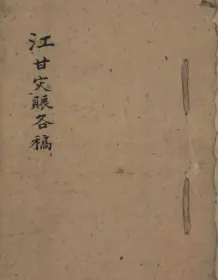 江甘灾赈各稿